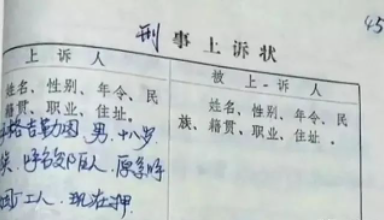 刑事上诉状
45
上诉人
被上诉人
姓名、性别、年令、民
籍贯、职业、住址。
姓名、性别、年令、民
族、籍贯、职业、住址。
格吉勒图 男.十八岁.
族.呼和郊区人.原系呼
厂工人.现在押